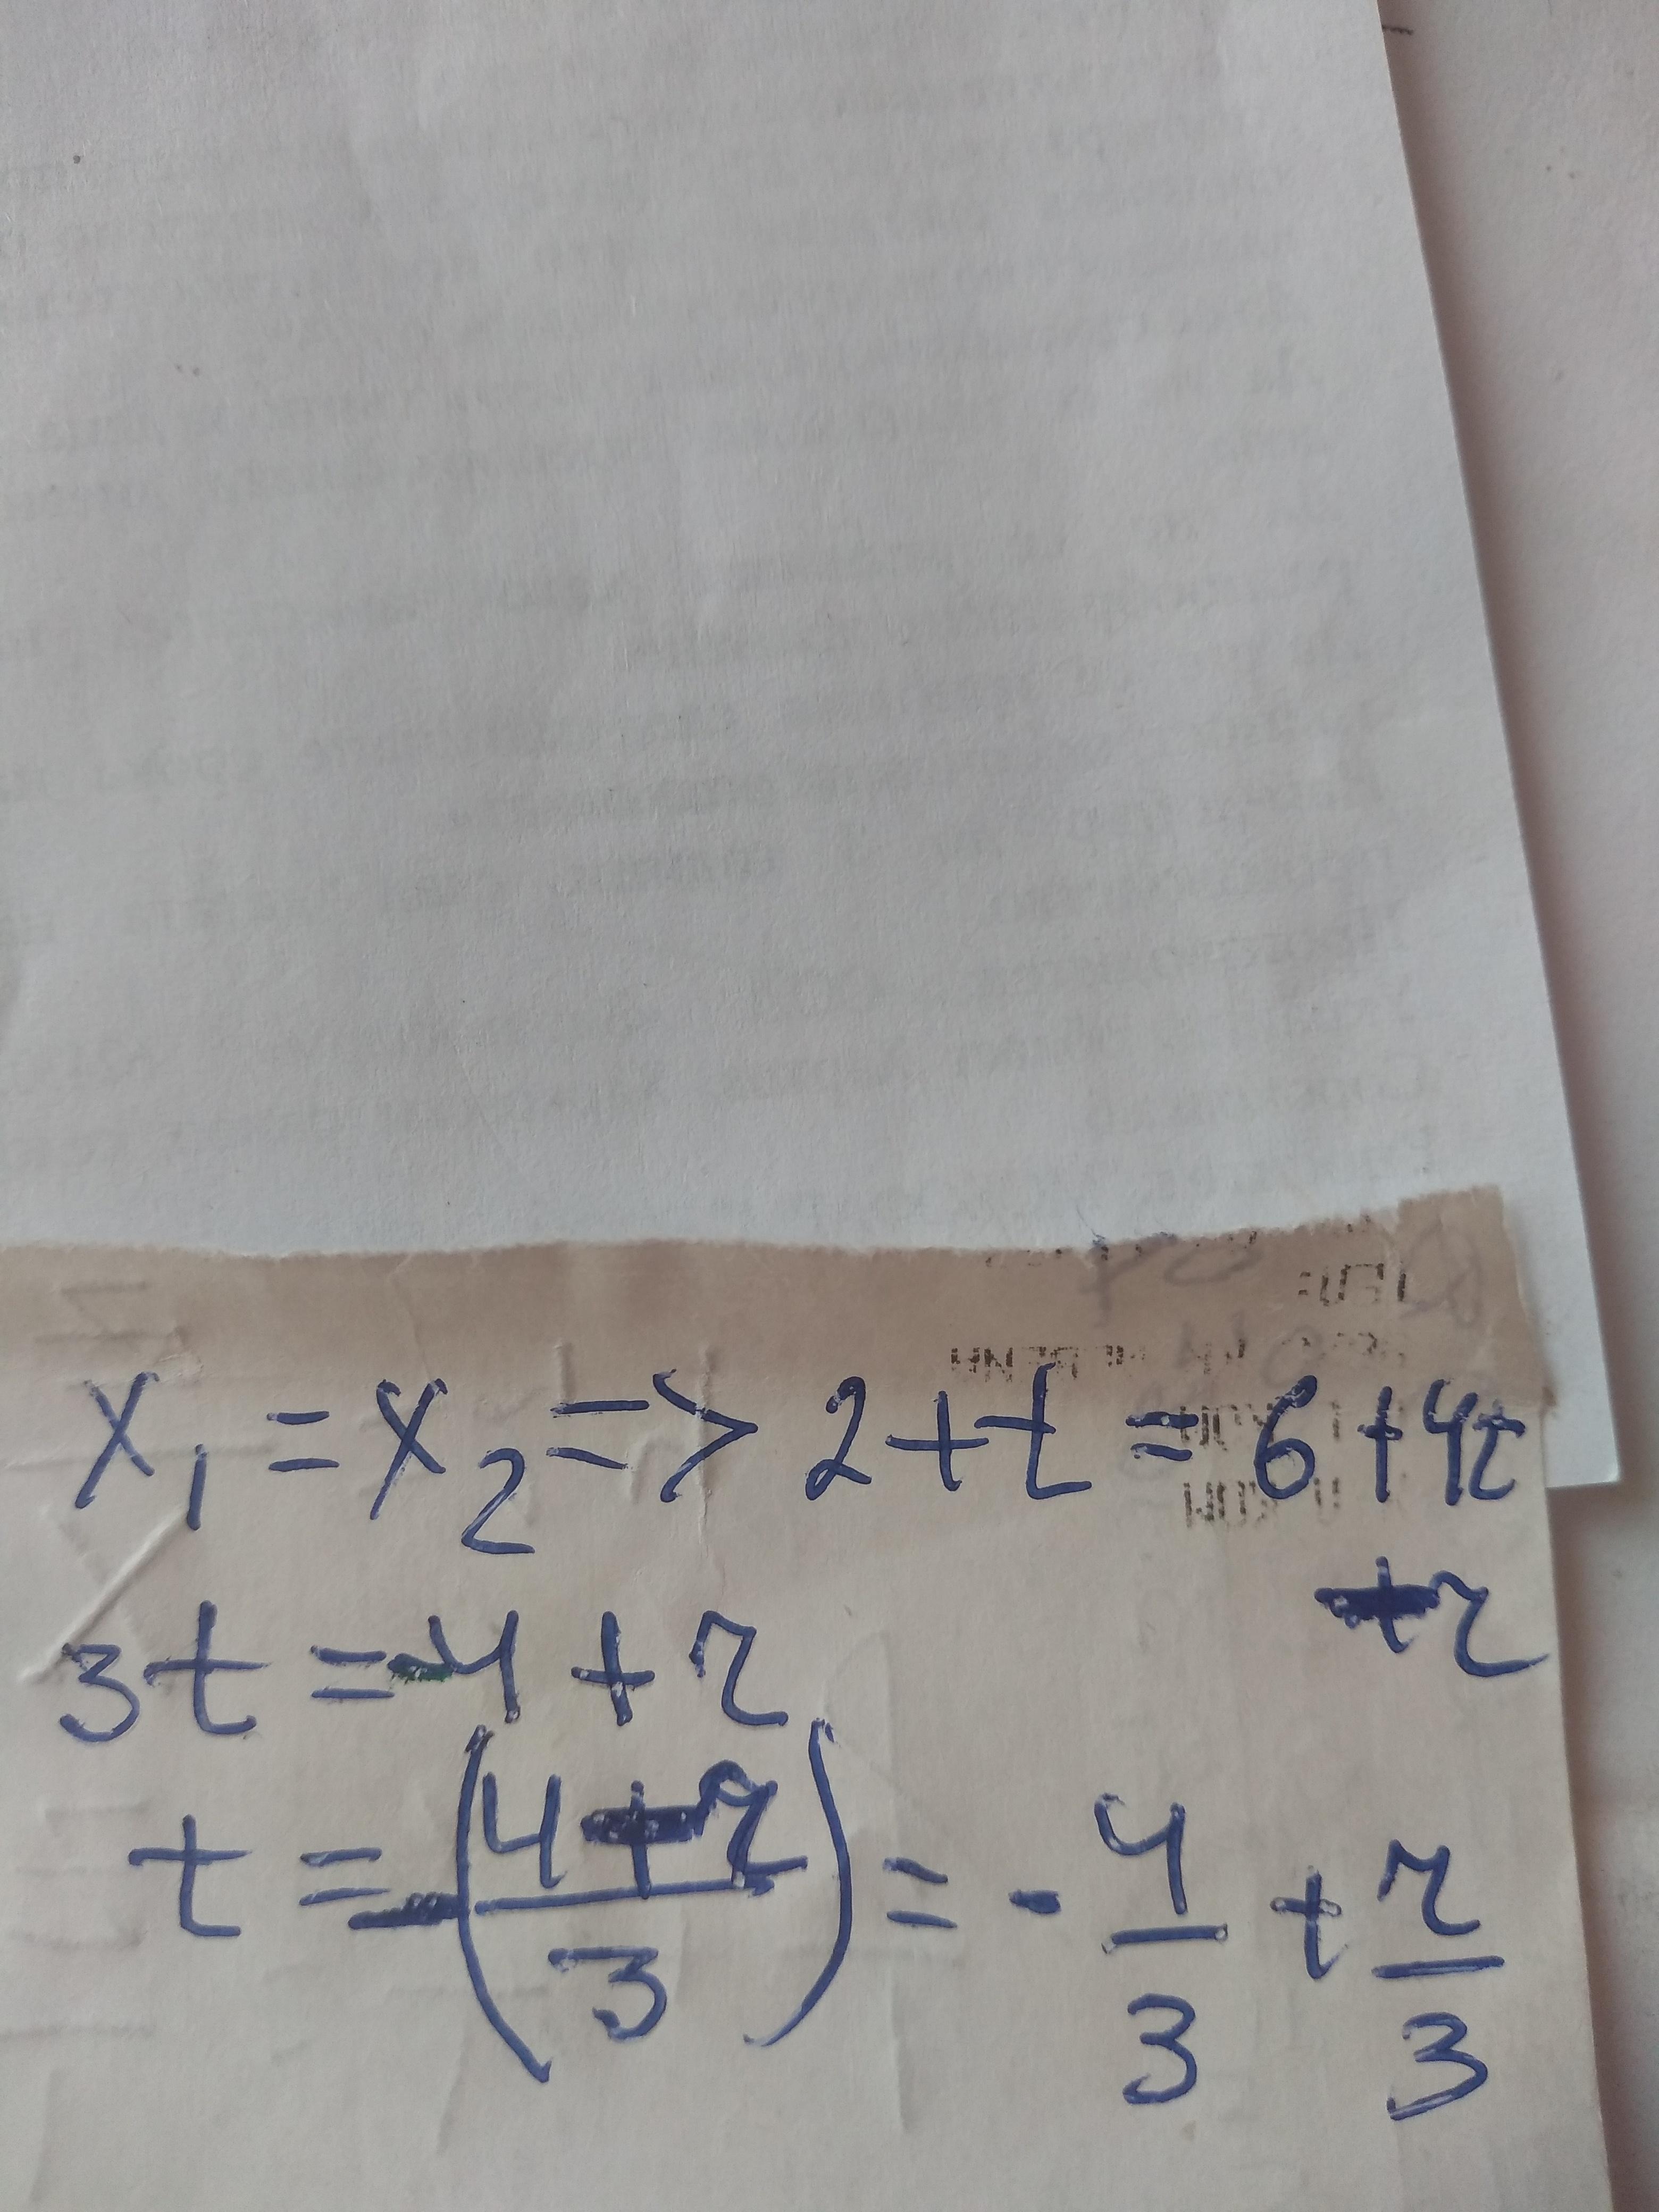 x₁ = x₂ => 2 + t = 6 + 4t
+ r
3t = -4 + r
t = -(4 + r / 3) = - 4/3 + r/3